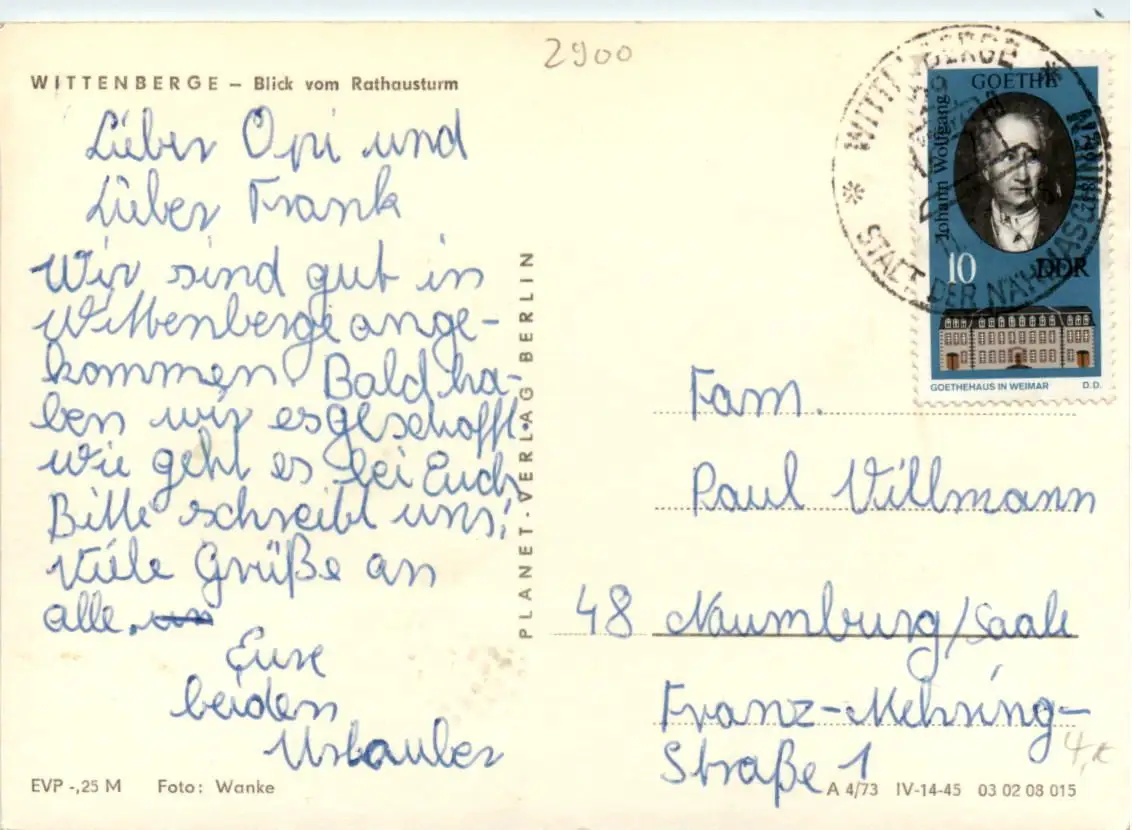 2900
WITTENBERGE – Blick vom Rathausturm
Lieber Opi und
Lieber Frank
Wir sind gut in
Wittenberge ange-
kommen. Bald ha-
ben wir es geschafft.
Wie geht es bei Euch
Bitte schreibt uns!
Viele Grüße an
alle.
Eure
beiden
Urlauber
EVP -,25 M Foto: Wanke
PLANET-VERLAG BERLIN
WITTENBERGE
STADT DER NÄHMASCHINEN
Johann Wolfgang
GOETHE
10
DDR
GOETHEHAUS IN WEIMAR D.D.
Fam.
Paul Villmann
48 Naumburg/Saale
Franz-Mehring-
Straße 1
A 4/73 IV-14-45 03 02 08 015